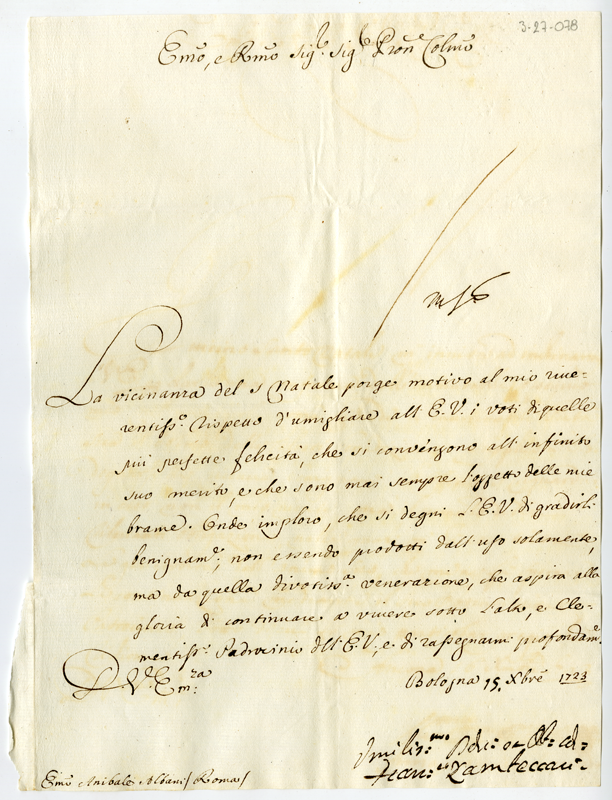 3-27-078
Emo, e Rmo Sigr. Sigr Pron̄e Colmo
La vicinanza del S Natale porge motivo al mio rive=
rentisso. rispetto d'umigliare all'E.V. i voti di quelle
più perfette felicità, che si convengono all'infinito
suo merito, e che sono mai sempre l'oggetto delle mie
brame. Onde imploro, che si degni l'E.V. di gradirli
benignamte; non essendo prodotti dall'uso solamente,
ma da quella divotissa. venerazione, che aspira alla
gloria di continuare a vivere sotto l'alto, e Cle=
mentissº. Padrocinio dell'E.V., e di rassegnarmi profondamte.
D. V. Emza.
Bologna 15. Xbre 1723
Umiliss.mo Dev: or Ob: ed:
Fran:co Zambeccari
Emo Anibale Albani / Roma /